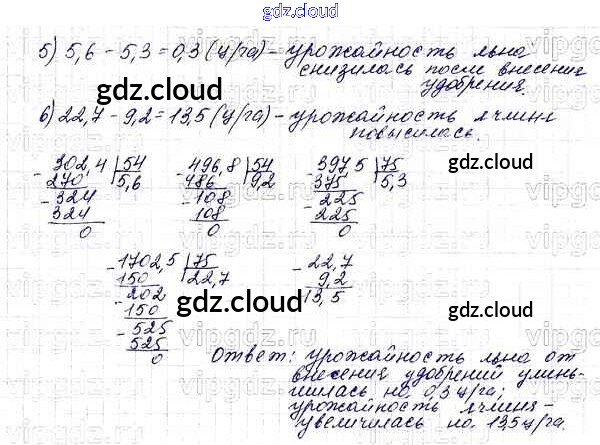 gdz.cloud
5) 5,6 - 5,3 = 0,3 (ц/га) - урожайность льна
снизилась после внесения
удобрения.
gdz.cloud
6) 22,7 - 9,2 = 13,5 (ц/га) - урожайность ячменя
повысилась.
gdz.cloud
302,4 | 54
270 | 5,6
324
324
0
496,8 | 54
486 | 9,2
108
108
0
397,5 | 75
375 | 5,3
225
225
0
1702,5 | 75
150 | 22,7
202
150
525
525
0
22,7
9,2
13,5
gdz.cloud
gdz.cloud
Ответ: урожайность льна от
внесения удобрений умень-
шилась на 0,3 ц/га;
урожайность ячменя -
увеличилась на 13,5 ц/га.
gdz.cloud